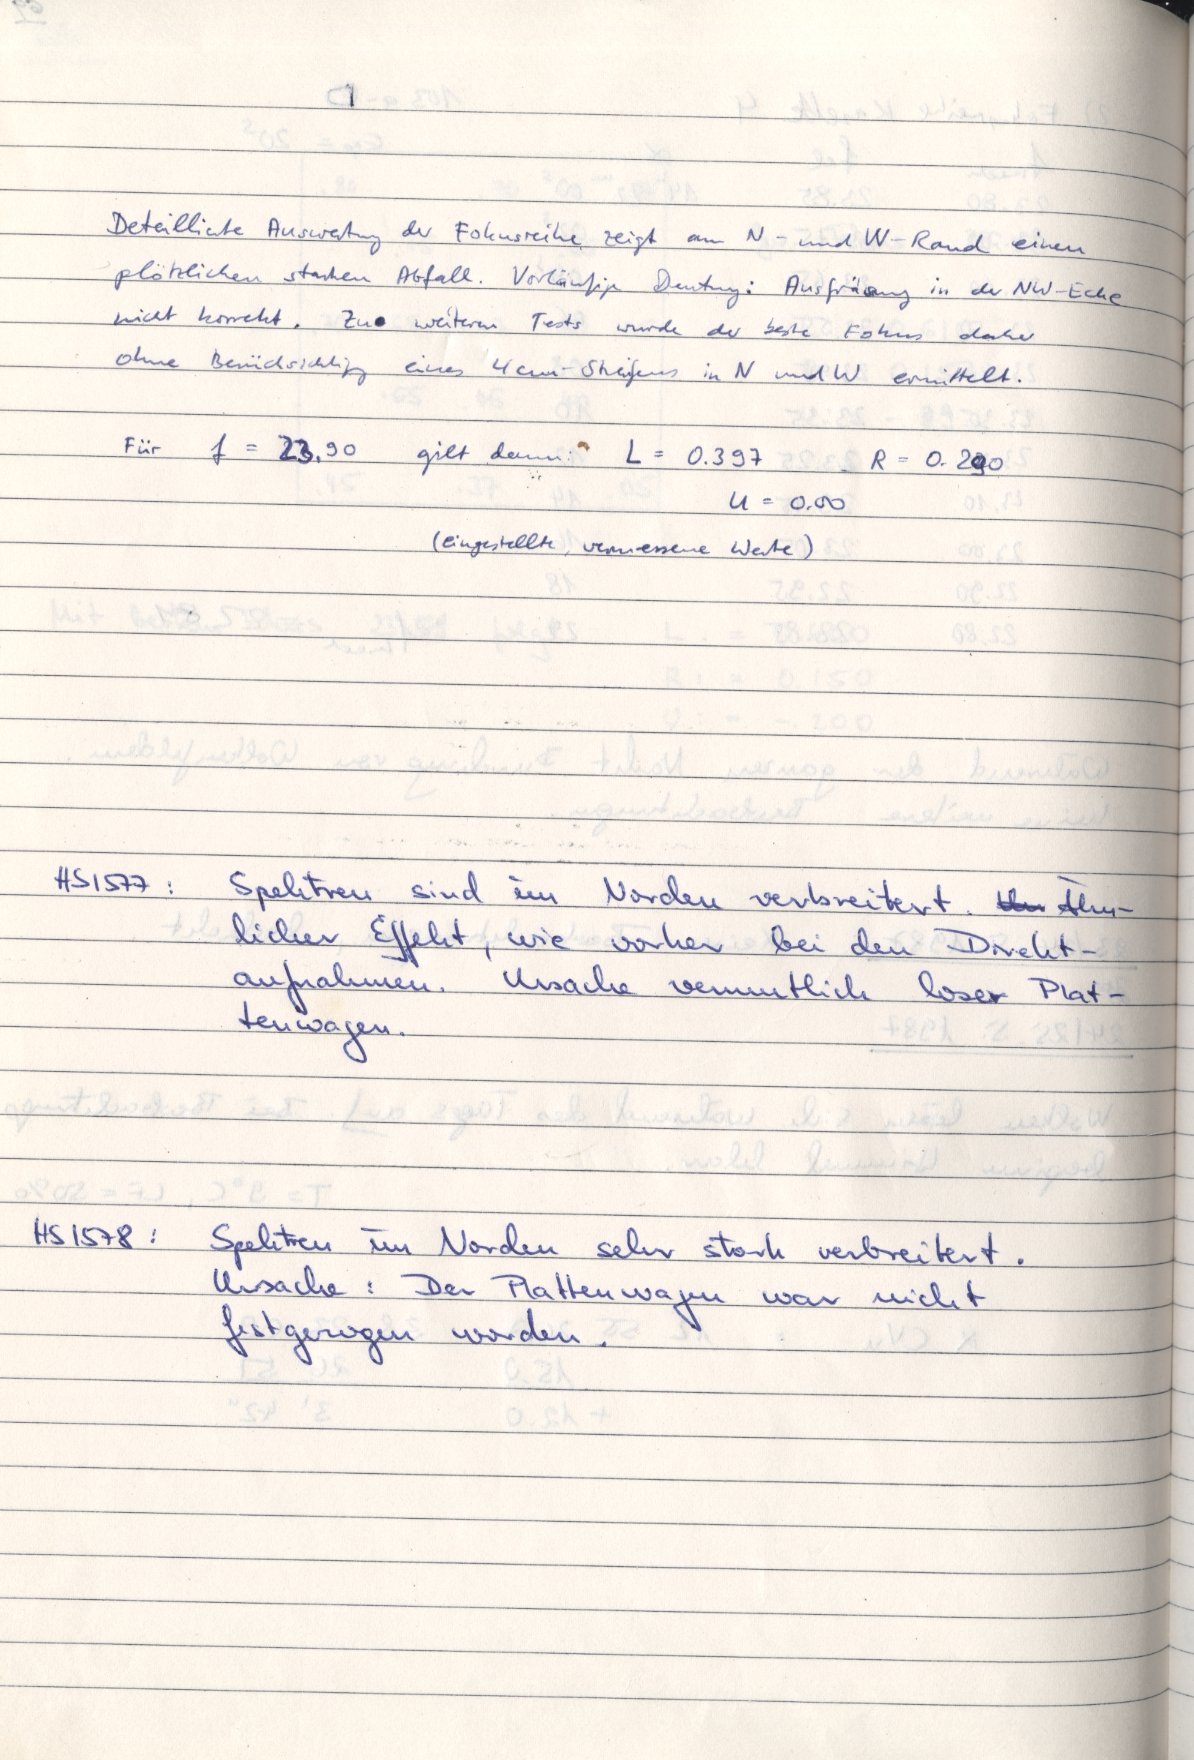 Detaillierte Auswertung der Fokusreihe zeigt am N- und W-Rand einen
plötzlichen starken Abfall. Vorläufige Deutung: Ausfräsung in der NW-Ecke
nicht korrekt. Zu weiteren Tests wurde der beste Fokus daher
ohne Berücksichtigg eines 4cm-Streifens in N und W ermittelt.
Für f = 23.90 gilt dann: L = 0.397 R = 0.290
U = 0.00
(eingestellte, vermessene Werte)
HS1577: Spektren sind im Norden verbreitert. Ähn-
licher Effekt, wie vorher bei den Direkt-
aufnahmen. Ursache vermutlich loser Plat-
tenwagen.
HS1578: Spektren im Norden sehr stark verbreitert.
Ursache: Der Plattenwagen war nicht
festgezogen worden.